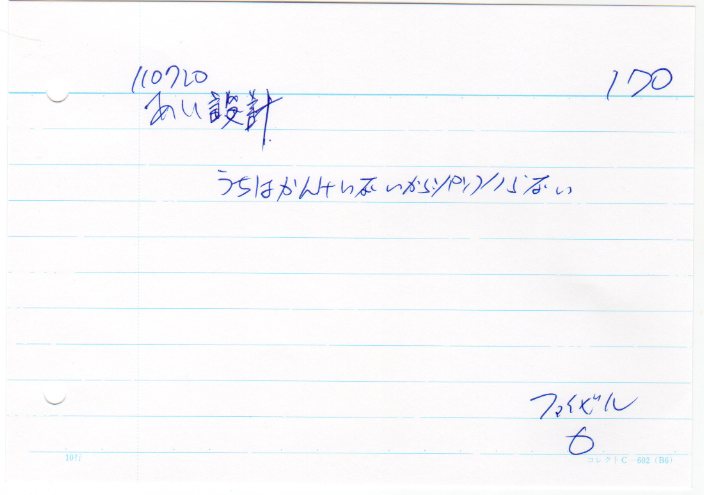 110720
170
あい設計
うちはかんけいないから
ファイザル
6
107
コレクト C-602 (B6)